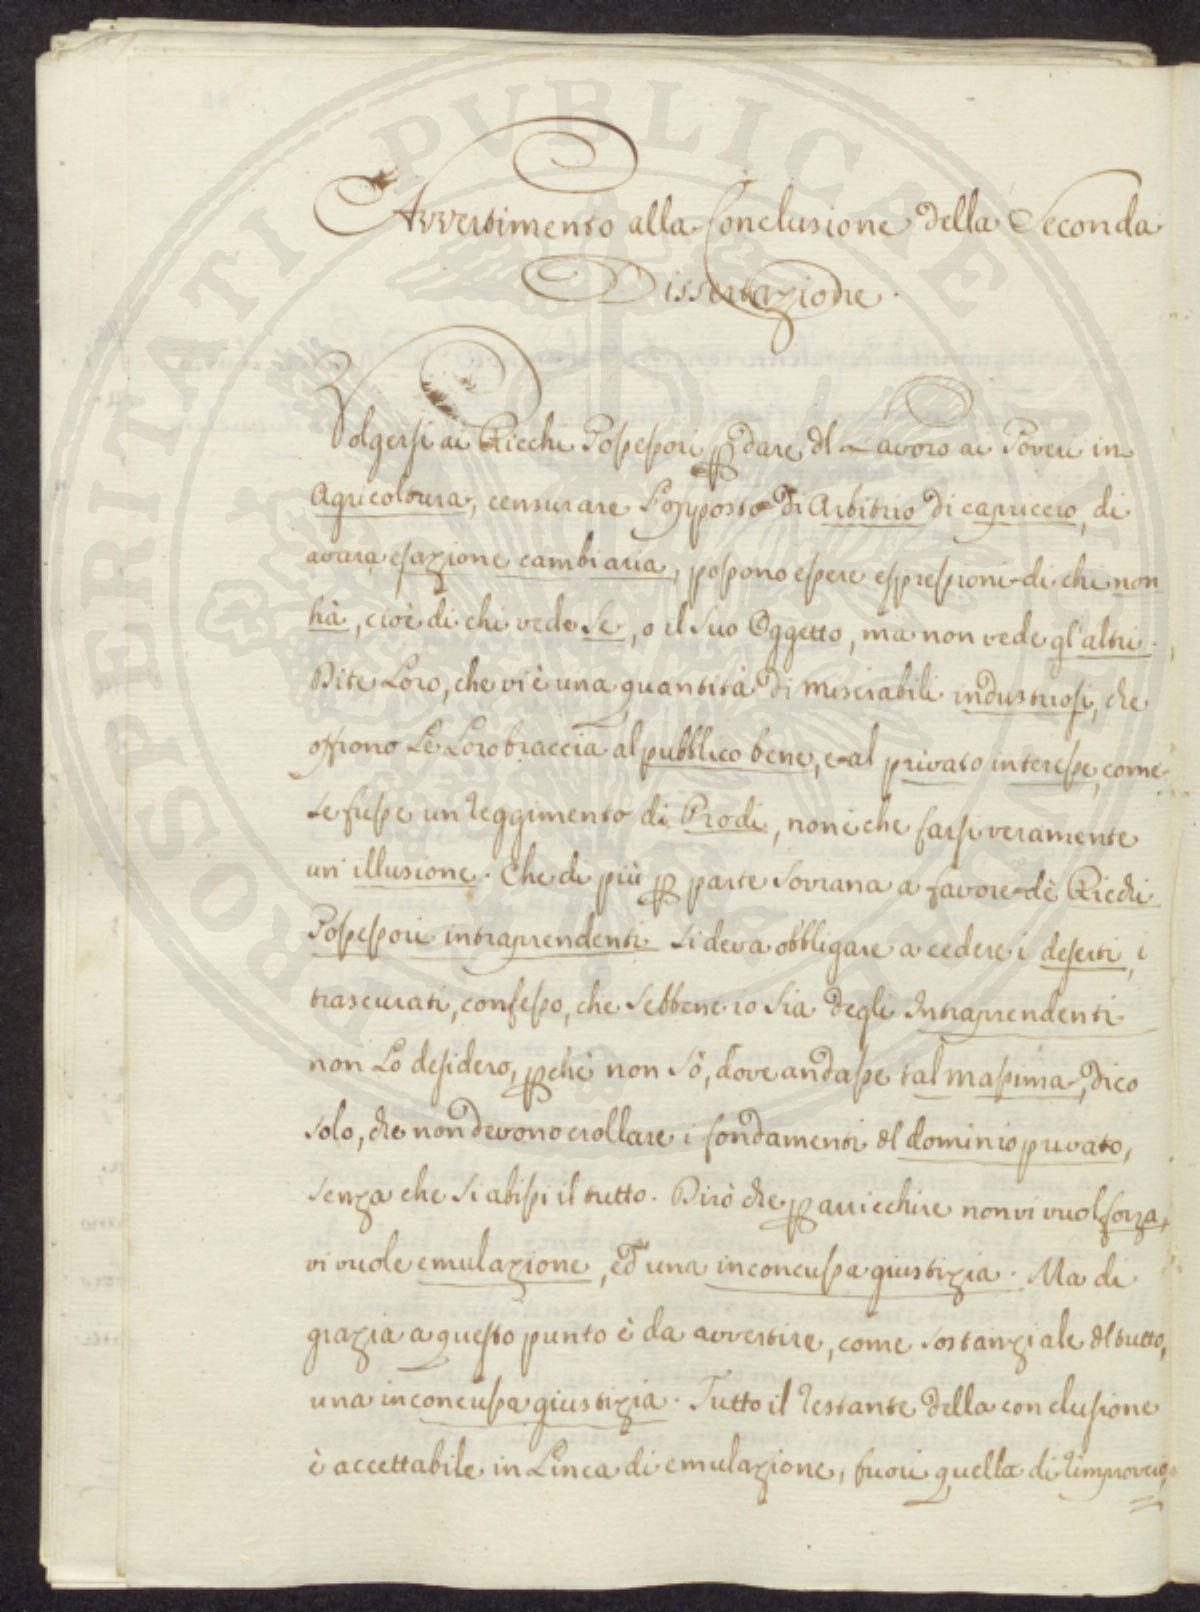 Avvertimento alla Conclusione della Seconda
Dissertazione.
Volgersi ai Ricchi Possessori p dare dl Lavoro ai Poveri in
Agricoltura, censurare l'opposto di Arbitrio di capriccio, di
avara esazione cambiaria, possono essere espressioni di chi non
hà, cioè di chi vede Se, o il suo Oggetto, ma non vede gl'altri.
Dite Loro, che vi è una quantità di miserabili industriosi, che
offrono Le Loro braccia al pubblico bene, e al privato interesse, come
se fusse un reggimento di Prodi, non è che farsi veramente
un illusione. Che di più p parte Sovrana a favore dè Ricchi
Possessori intraprendenti si deva obbligare a cedere i deserti, i
trascurati, confesso, che sebbene io sia degli Intraprendenti
non Lo desidero, pchè non sò, dove andasse tal massima, dico
solo, che non devono crollare i fondamenti dl dominio privato,
senza che si abissi il tutto. Dirò che p arricchire non vi vuol forza,
vi vuole emulazione, ed una inconcussa giustizia. Ma di
grazia a questo punto è da avvertire, come sostanziale dl tutto,
una inconcussa giustizia. Tutto il restante della conclusione
è accettabile in Linea di emulazione, fuori quella di rimprovero,
PROSPERITATI PUBLICAE AUGENDAE